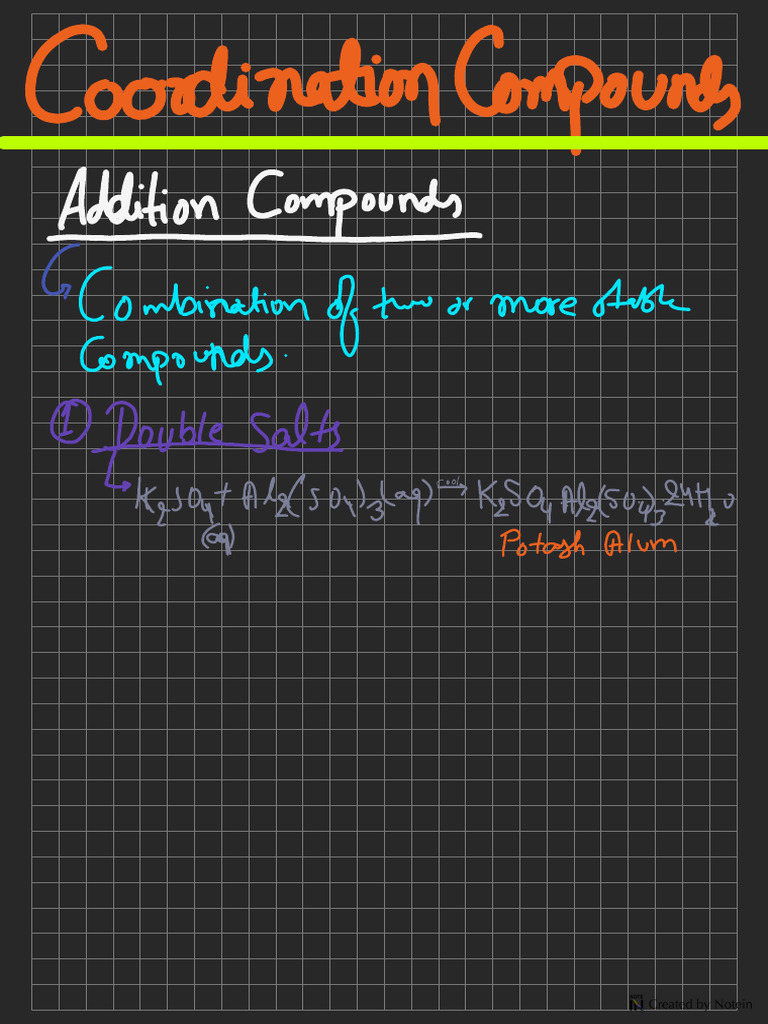 Coordination Compounds
Addition Compounds
Combination of two or more stable
Compounds.
① Double Salts
K₂SO₄ + Al₂(SO₄)₃(aq) cool→ K₂SO₄ Al₂(SO₄)₃ 24H₂O
(aq)
Potash Alum
Created by Notein